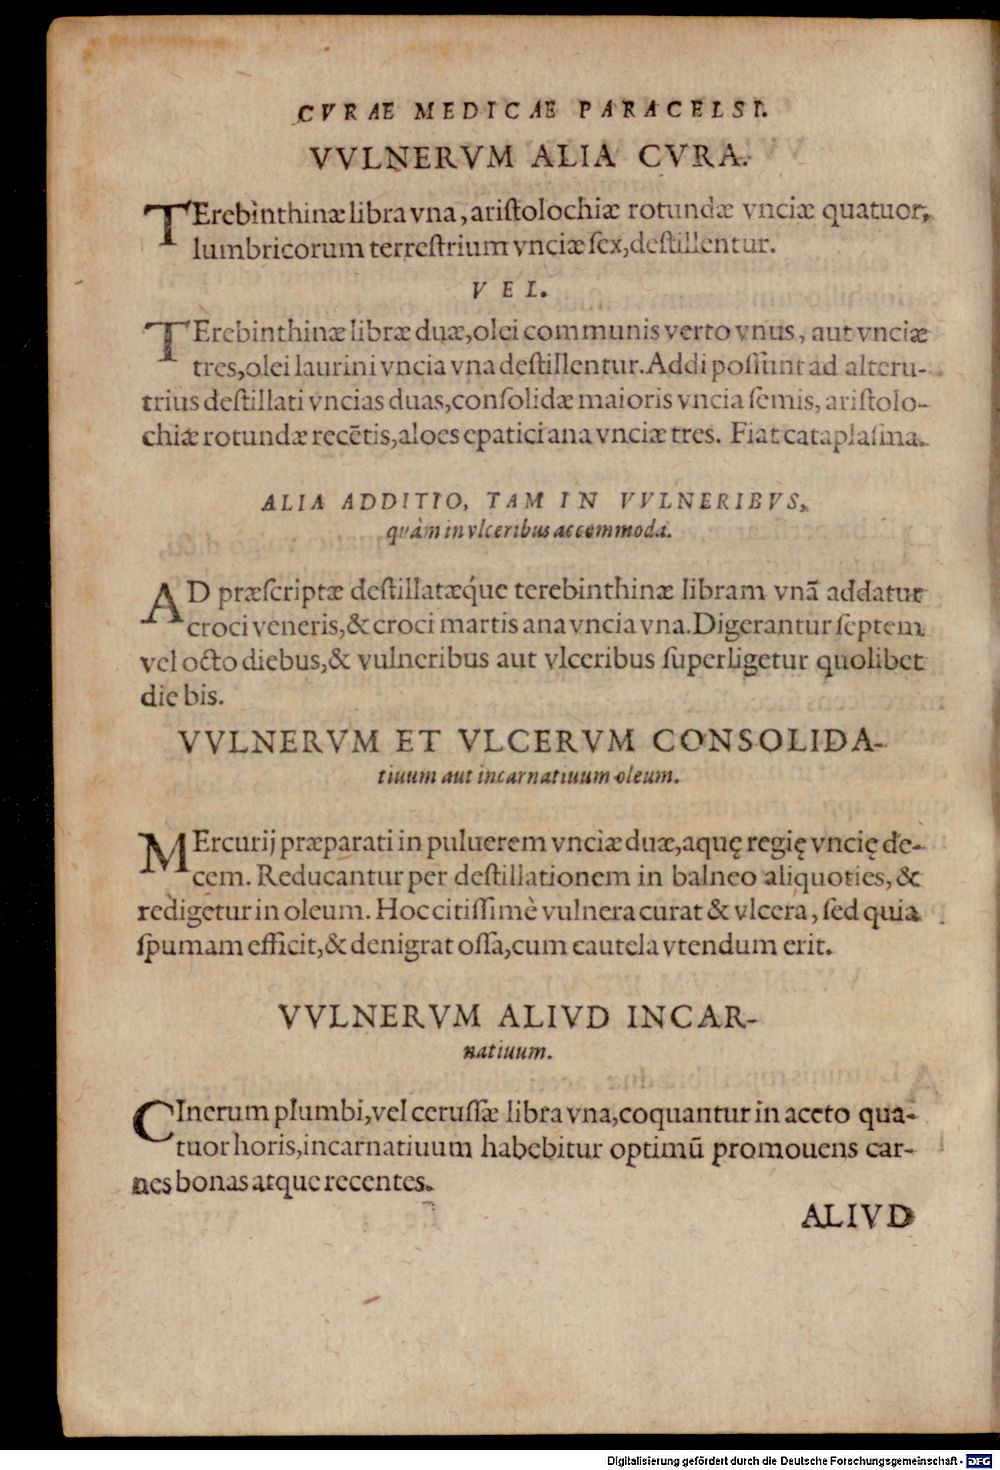 CVRAE MEDICAE PARACELSI.
VVLNERVM ALIA CVRA.
TErebinthinæ libra vna, aristolochiæ rotundæ vnciæ quatuor,
lumbricorum terrestrium vnciæ sex, destillentur.
VEL.
TErebinthinæ libræ duæ, olei communis verto vnus, aut vnciæ
tres, olei laurini vncia vna destillentur. Addi possunt ad alteru-
trius destillati vncias duas, consolidæ maioris vncia semis, aristolo-
chiæ rotundæ recẽtis, aloes epatici ana vnciæ tres. Fiat cataplasma.
ALIA ADDITIO, TAM IN VVLNERIBVS,
quàm in vlceribus accommoda.
AD præscriptæ destillatæq́ue terebinthinæ libram vnã addatur
croci veneris, & croci martis ana vncia vna. Digerantur septem
vel octo diebus, & vulneribus aut vlceribus superligetur quolibet
die bis.
VVLNERVM ET VLCERVM CONSOLIDA-
tiuum aut incarnatiuum oleum.
MErcurij præparati in puluerem vnciæ duæ, aquę regię vncię de-
cem. Reducantur per destillationem in balneo aliquoties, &
redigetur in oleum. Hoc citissimè vulnera curat & vlcera, sed quia
spumam efficit, & denigrat ossa, cum cautela vtendum erit.
VVLNERVM ALIVD INCAR-
natiuum.
CInerum plumbi, vel cerussæ libra vna, coquantur in aceto qua-
tuor horis, incarnatiuum habebitur optimũ promouens car-
nes bonas atque recentes.
ALIVD
Digitalisierung gefördert durch die Deutsche Forschungsgemeinschaft - DFG